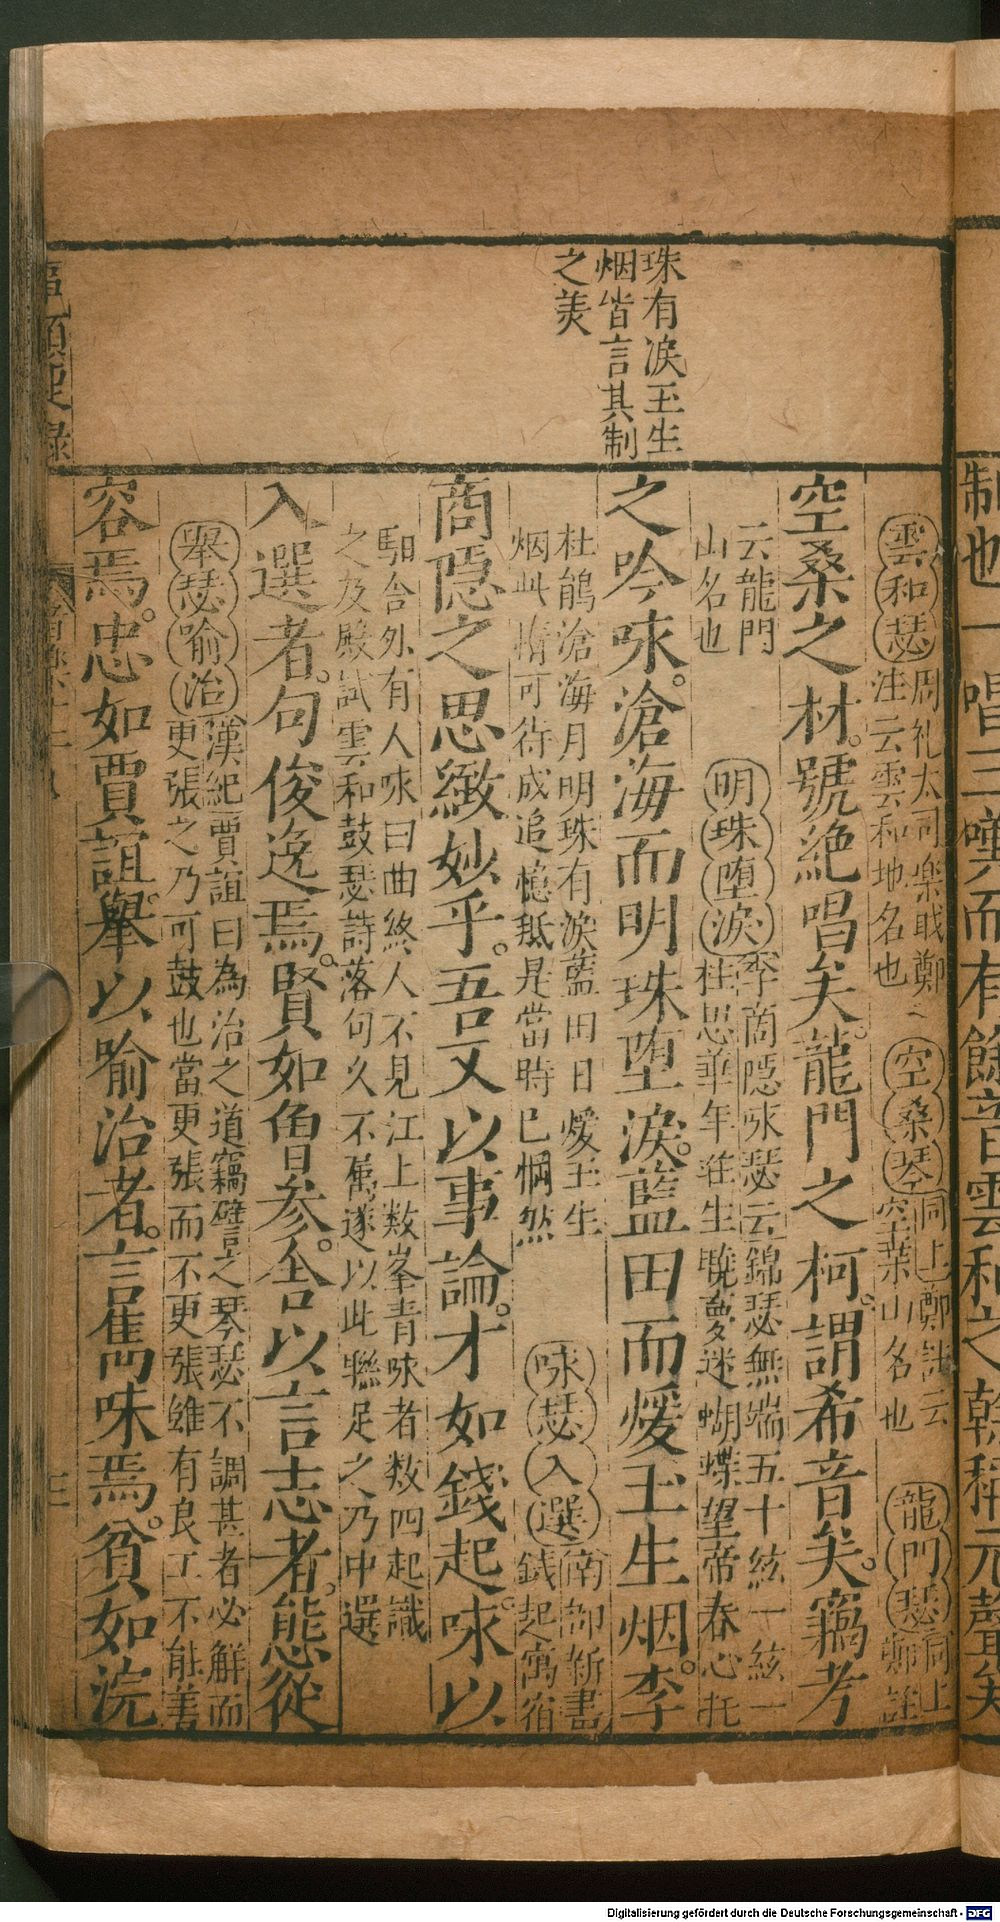 制也一唱三嘆而有餘音雲和之幹稱元聲矣
珠有淚玉生
烟皆言其制
之美
雲和瑟
周礼太司樂戢鄭
注云雲和地名也
空桑琴
同上鄭註云
空桒山名也
龍門瑟
同上
鄭註
空桑之材號絶唱矣龍門之柯謂希音矣竊考
云龍門
山名也
明珠堕淚
李商隠咏瑟云錦瑟無端五十絃一絃一
柱思華年荘生曉夢迷蝴蝶望帝春心托
之吟咏滄海而明珠堕淚藍田而煖玉生烟李
杜鵑滄海月明珠有淚藍田日煖玉生
烟此情可待成追憶秪是當時已惘然
咏瑟入選
南部新書
錢起寓宿
商隠之思緻妙乎吾又以事論才如錢起咏以
馹舎外有人咏曰曲終人不見江上数峯青咏者数四起識
之及殿試雲和鼓瑟詩落句久不属遂以此聯足之乃中選
入選者句俊逸焉賢如魯参舎以言志者態從
舉瑟喻治
漢紀賈誼曰為治之道竊譬之琴瑟不調甚者必解而
更張之乃可鼓也當更張而不更張雖有良工不能善
容焉忠如賈誼舉以喻治者言雋味焉貧如浣